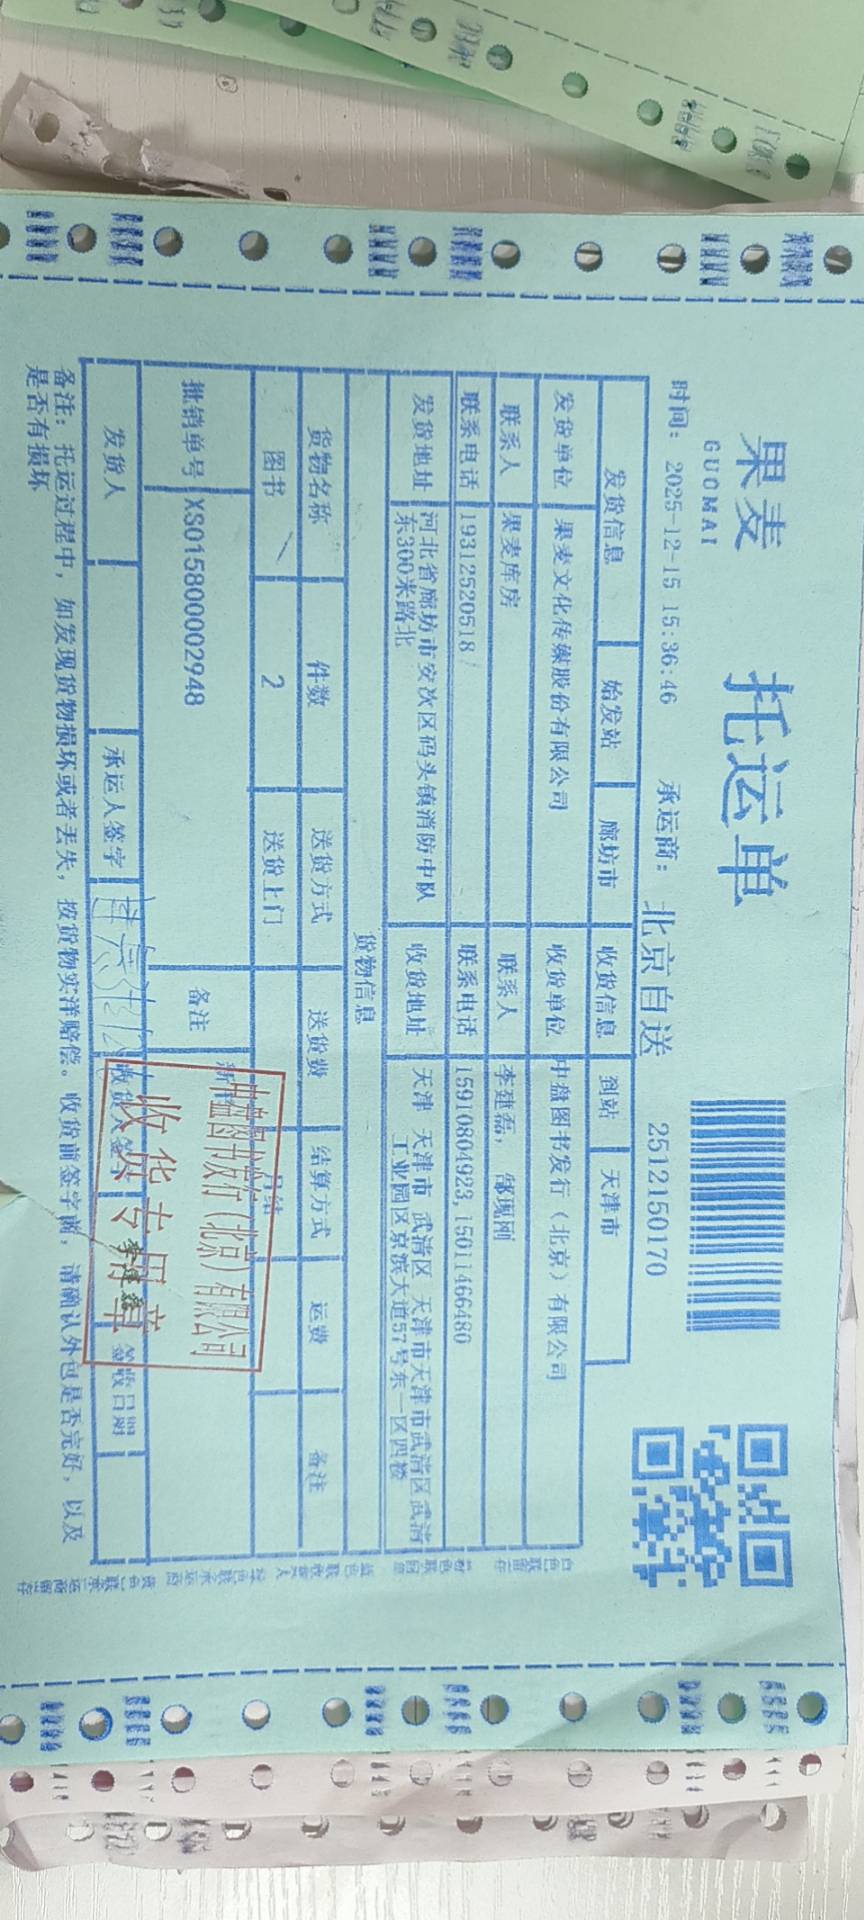 果麦
GUOMAI
托运单
时间: 2025-12-15 15:36:46 承运商: 北京自送 2512150170
发货信息 始发站 廊坊市 收货信息 到站 天津市
发货单位 果麦文化传媒股份有限公司 收货单位 中盘图书发行（北京）有限公司
联系人 果麦库房 联系人 李建磊, 郜现刚
联系电话 19312520518/ 联系电话 15910804923,15011466480
发货地址 河北省廊坊市安次区码头镇消防中队
东300米路北
收货地址 天津 天津市 武清区 天津市天津市武清区武清
工业园区京滨大道57号东一区四楼
货物信息
货物名称 件数 送货方式 送货费 结算方式 运费 备注
图书 2 送货上门 月结
批销单号 XS01580002948 备注
中盘图书发行（北京）有限公司
收货专用章
发货人 承运人签字 收货人签字 签收日期
备注: 托运过程中, 如发现货物损坏或者丢失, 按货物实洋赔偿。收货前签字前, 请确认外包是否完好, 以及
是否有损坏